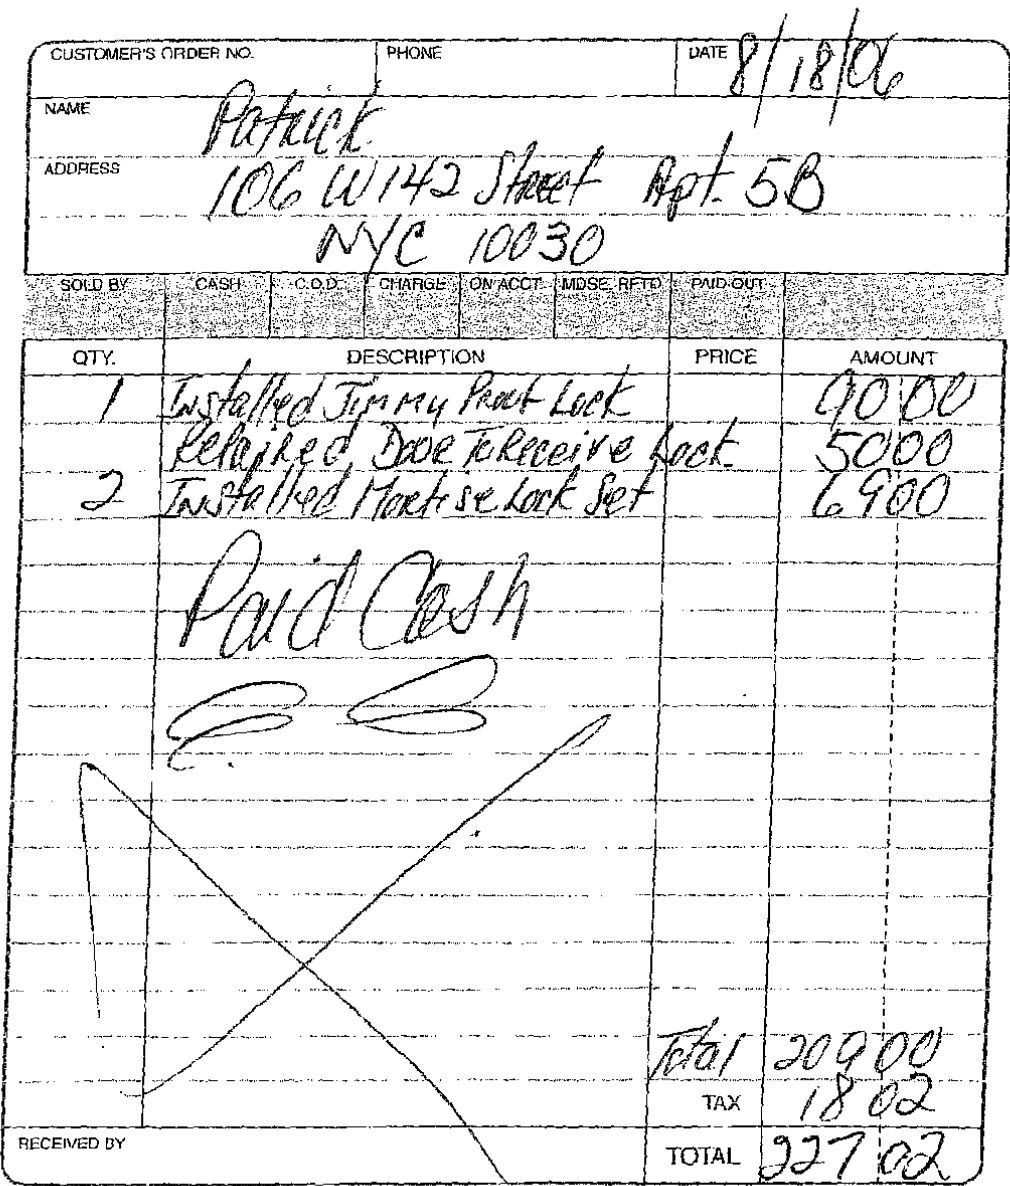 CUSTOMER'S ORDER NO. PHONE DATE 8/18/06
NAME Patrick
ADDRESS 106 W 142 Street Apt. 5B
NYC 10030
SOLD BY CASH C.O.D. CHARGE ON ACCT. MDSE. RETD. PAID OUT
QTY. DESCRIPTION PRICE AMOUNT
1 Installed Jimmy Proof Lock 90 00
Repaired Door To Receive Lock. 50 00
2 Installed Mortise Lock Set 69 00
Paid Cash
Total 209 00
TAX 18 02
RECEIVED BY TOTAL 227 02